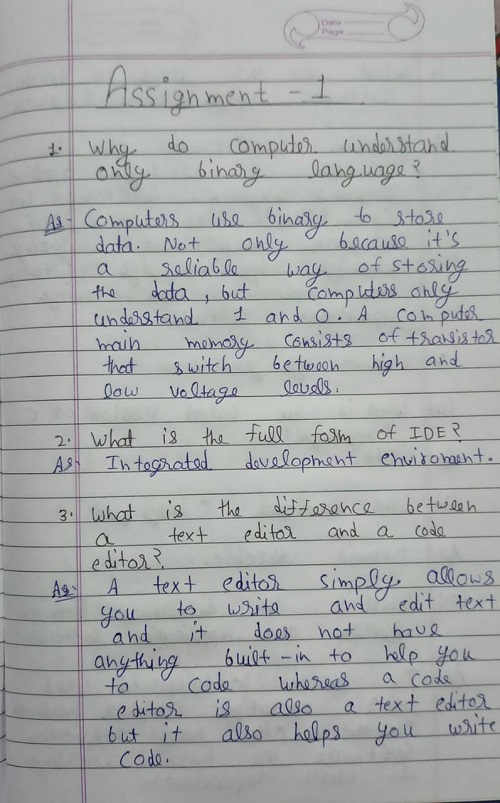 Data
Page
Assignment - 1
1. Why do computer understand
only binary language?
As:- Computers use binary to store
data. Not only because it's
a reliable way of storing
the data, but computers only
understand 1 and 0. A computer
main memory consists of transistor
that switch between high and
low voltage levels.
2. What is the full form of IDE?
As:- Integrated development enviroment.
3. What is the difference between
a text editor and a code
editor?
As:- A text editor simply allows
you to write and edit text
and it does not have
anything built-in to help you
to code whereas a code
editor is also a text editor
but it also helps you write
code.